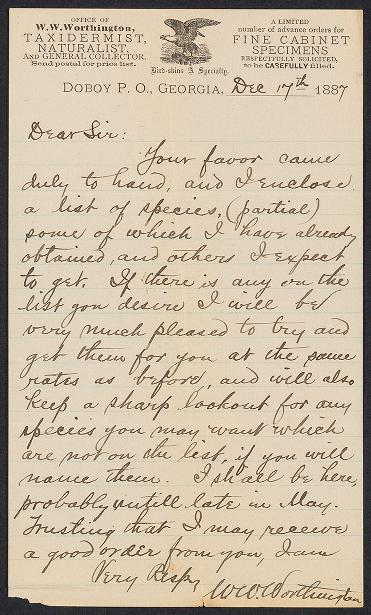 OFFICE OF
W. W. Worthington,
TAXIDERMIST,
NATURALIST,
AND GENERAL COLLECTOR.
Send postal for price list.
Bird-skins A Specialty.
A LIMITED
number of advance orders for
FINE CABINET
SPECIMENS
RESPECTFULLY SOLICITED,
to be CAREFULLY filled.
DOBOY P. O., GEORGIA, Dec 17th 1887
Dear Sir:
Your favor came
duly to hand, and I enclose
a list of species, (partial)
some of which I have already
obtained, and others I expect
to get. If there is any on the
list you desire I will be
very much pleased to try and
get them for you at the same
rates as before, and will also
keep a sharp lookout for any
species you may want which
are not on the list, if you will
name them. I shall be here,
probably untill late in May.
Trusting that I may receive
a good order from you, I am
Very Respy,
W. W. Worthington